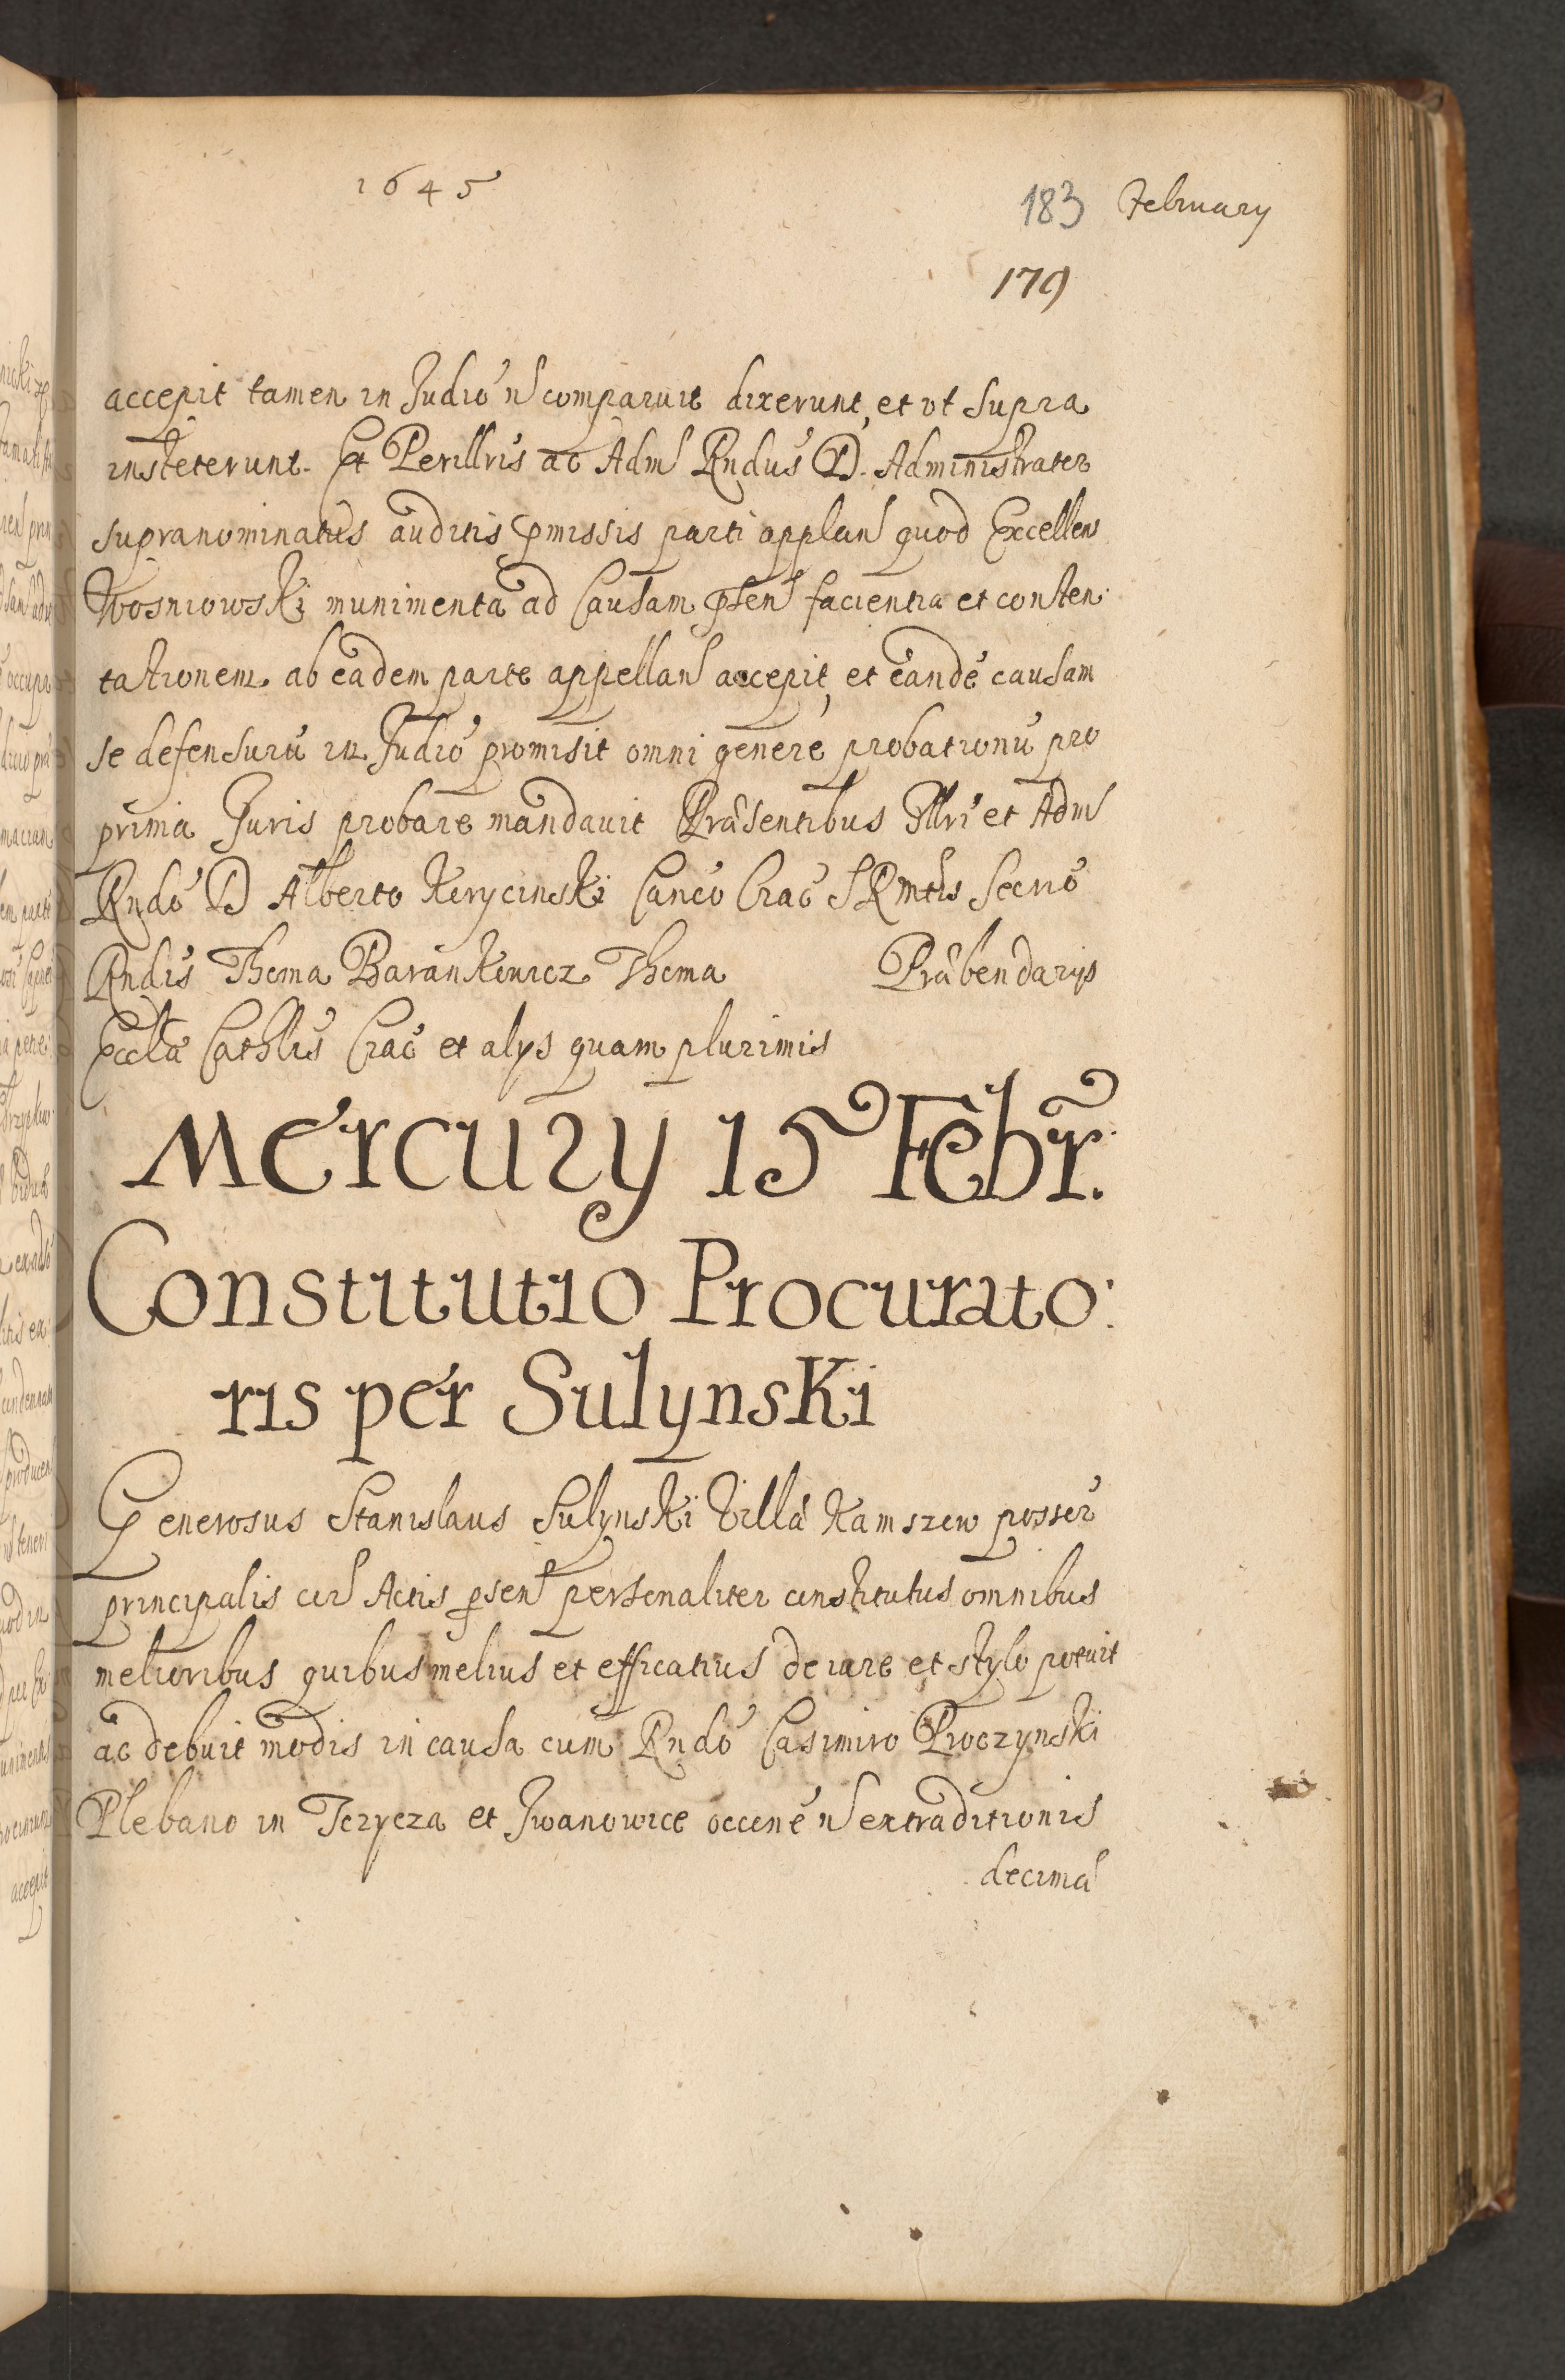 1645
183 February
179
accepit tamen in Judiō ń comparuit dixerunt, et ut supra
institerunt. Et Perillris ac Adm Rndus D. Administrator
supranominatus auditis pmissis parti applan quod Excellens
Wosniowski munimenta ad Causam psen facientia et conten:
tationem ab eadem parte appellan accepit, et eandē causam
se defensurū in Judiō promisit omni genere probationū pro
prima Juris probare mandavit Præsentibus Illri et Adm
Rndō D Alberto Kerycinski Canco Crac S R Mtis Secrio
Rndis Thoma Barankowicz Thoma Præbendarys
Eccla Cathlis Crac et alys quam plurimis
Mercury 15 Febr.
Constitutio Procurato:
ris per Sulynski
Generosus Stanislaus Sulynski Villa Kamszew posser
principalis cor Actis psen personaliter constitutus omnibus
melioribus quibus melius et efficatius de iure et stylo potuit
ac debuit modis in causa cum Rndo Casimiro Proczynski
Plebano in Tczycza et Jwanowice occone ń extraditionis
decima